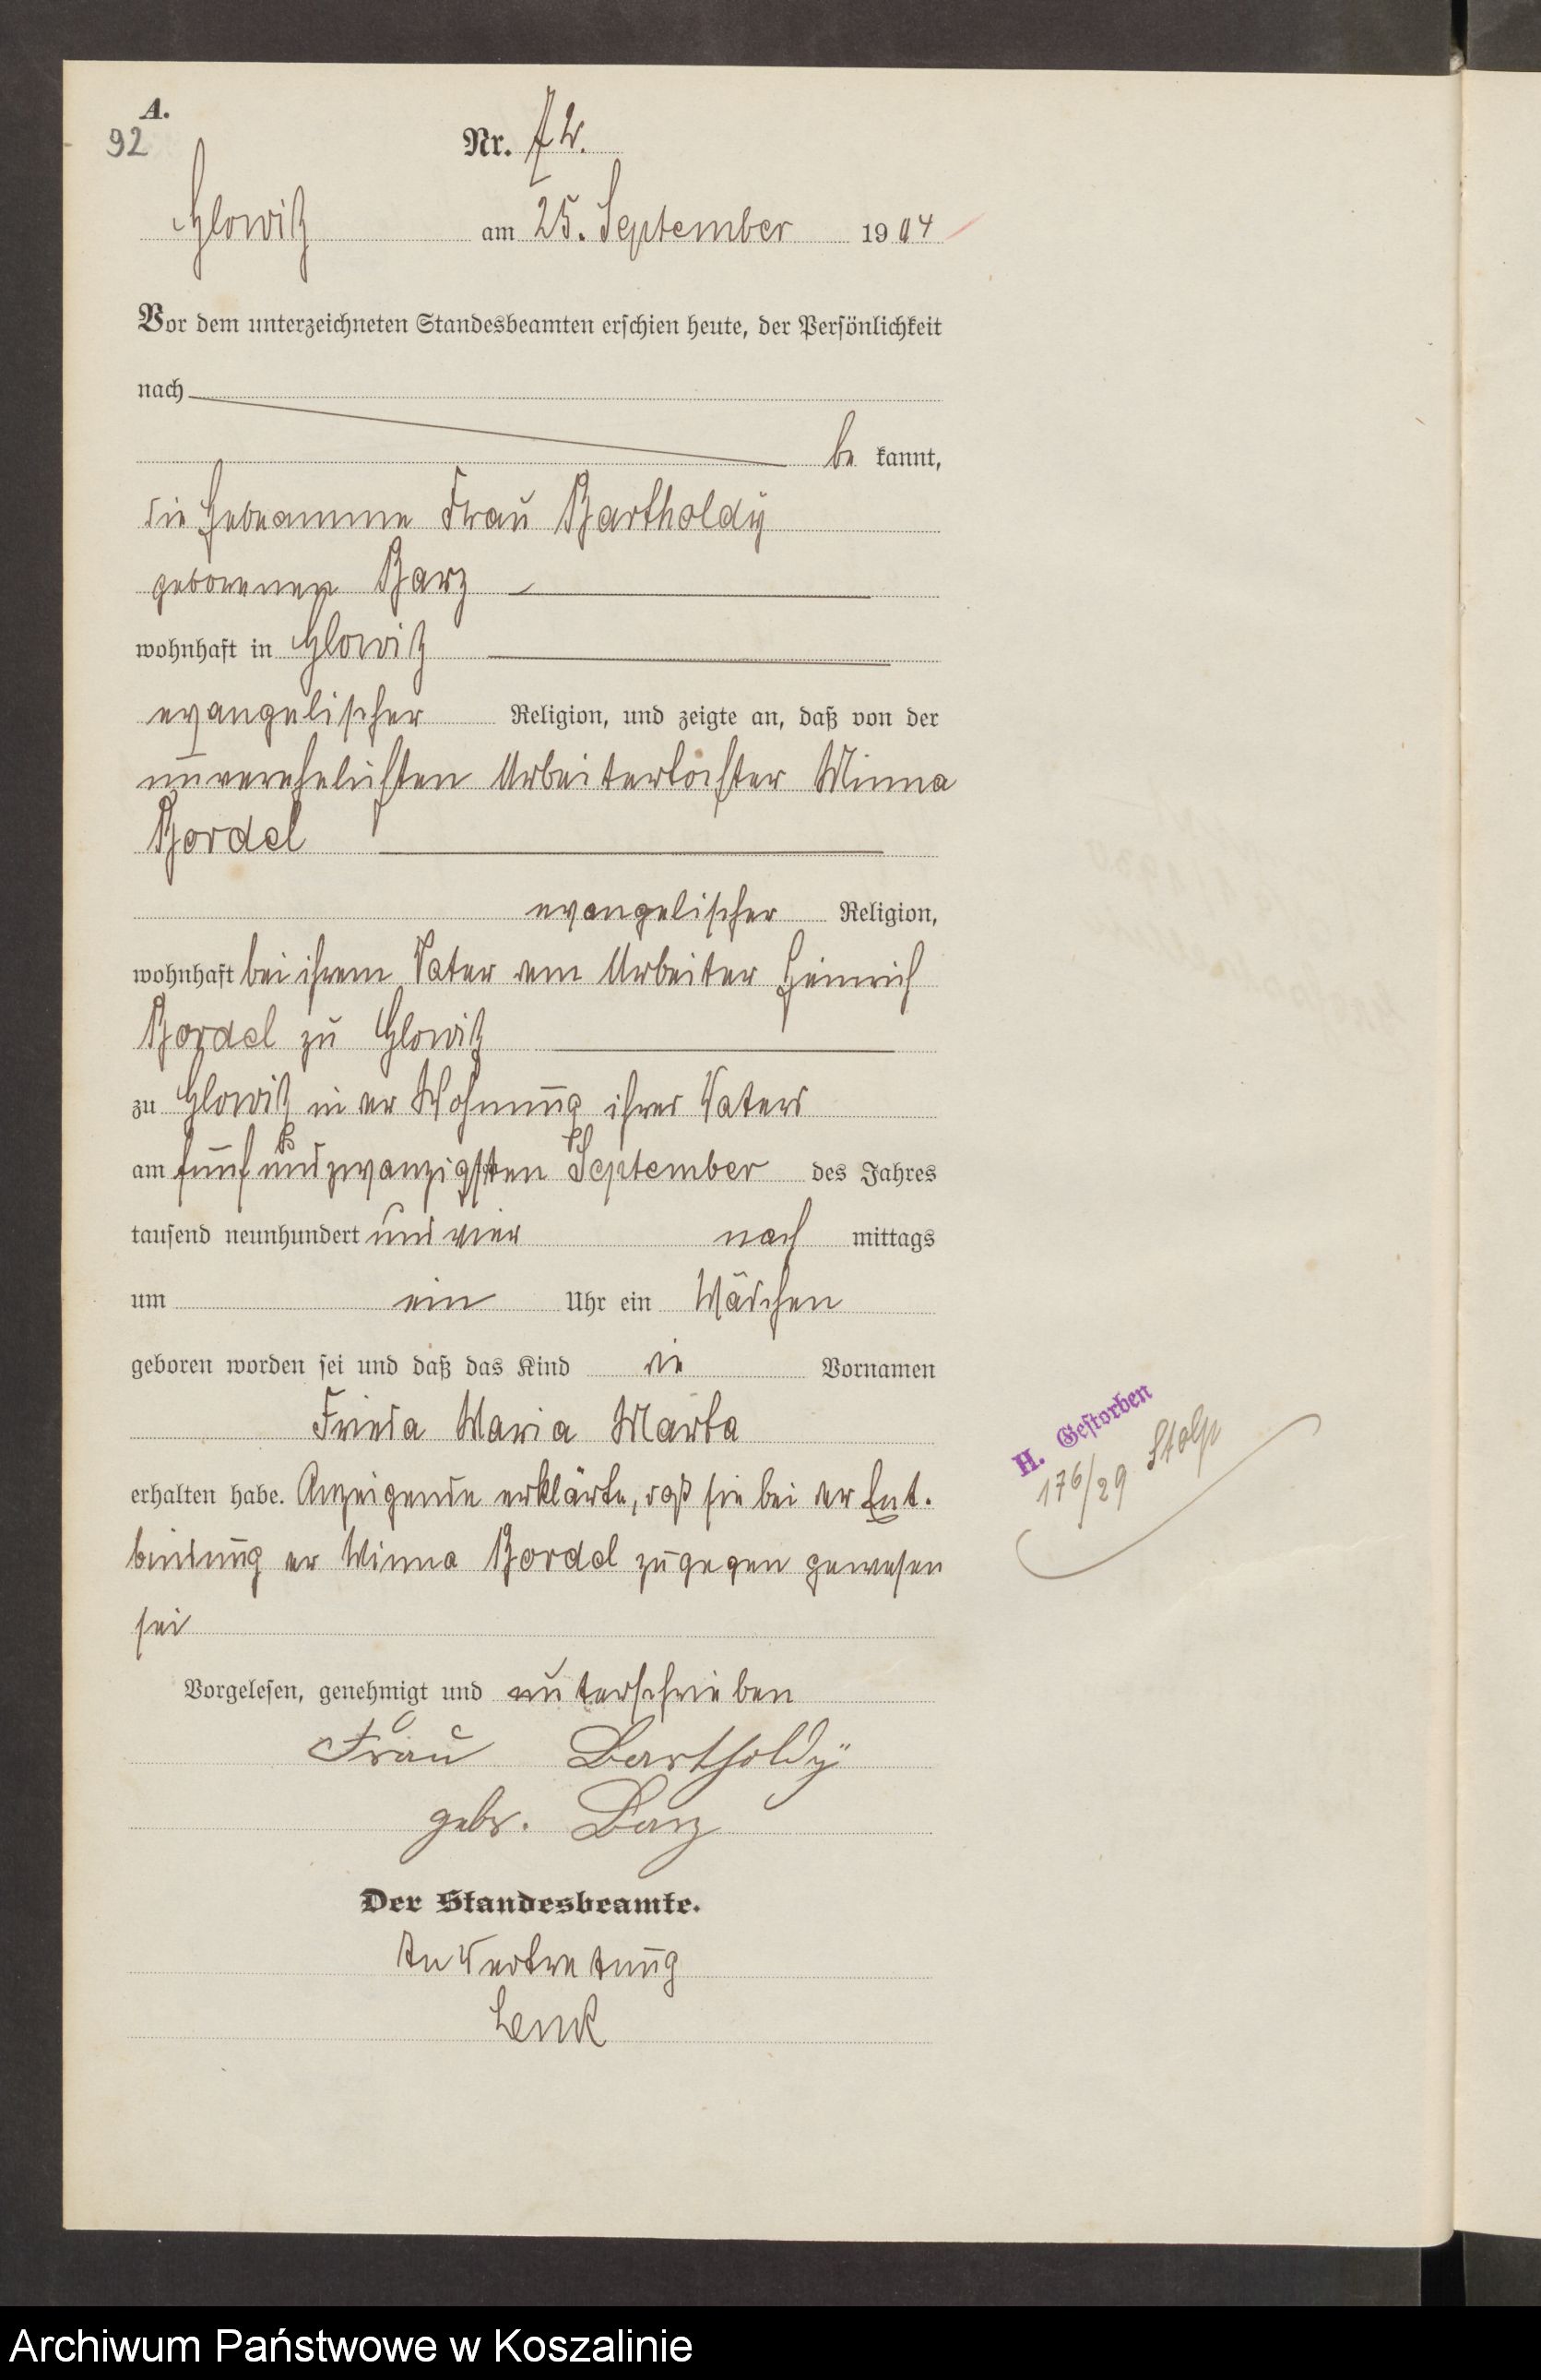 A.
92
Nr. 72.
Glowitz am 25. September 1904
Vor dem unterzeichneten Standesbeamten erschien heute, der Persönlichkeit
nach
be kannt,
die Hebeamme Frau Bartholdy
geborenen Barz
wohnhaft in Glowitz
evangelischer Religion, und zeigte an, daß von der
unverehelichten Arbeitertochter Minna
Bordel
evangelischer Religion,
wohnhaft bei ihrem Vater dem Arbeiter Heinrich
Bordel zu Glowitz
zu Glowitz in der Wohnung ihres Vaters
am fünf und zwanzigsten September des Jahres
tausend neunhundert und vier nach mittags
um ein Uhr ein Mädchen
geboren worden sei und daß das Kind die Vornamen
Frieda Maria Marta
H. Gestorben
176/29 Stolp
erhalten habe. Anzeigende erklärte, daß sie bei der Ent-
bindung der Minna Bordel zugegen gewesen
sei
Vorgelesen, genehmigt und unterschrieben
Frau Bartholdÿ
gebr. Barz
Der Standesbeamte.
In Vertretung
Lenk
Archiwum Państwowe w Koszalinie